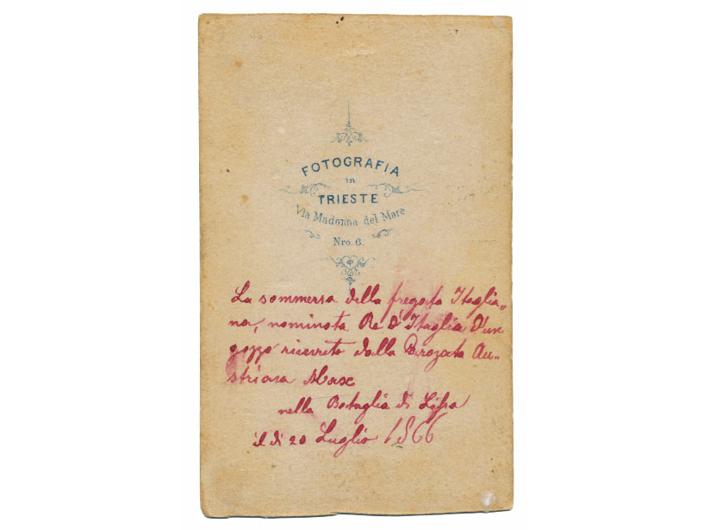 FOTOGRAFIA
in
TRIESTE
Via Madonna del Mare
Nro. 6.
La sommersa della fregata Itaglia-
na, nominata Re D'Itaglia D'un
ricevuto dalla Au-
striaca Max
nella Bataglia di Lissa
il di 20 Luglio 1866